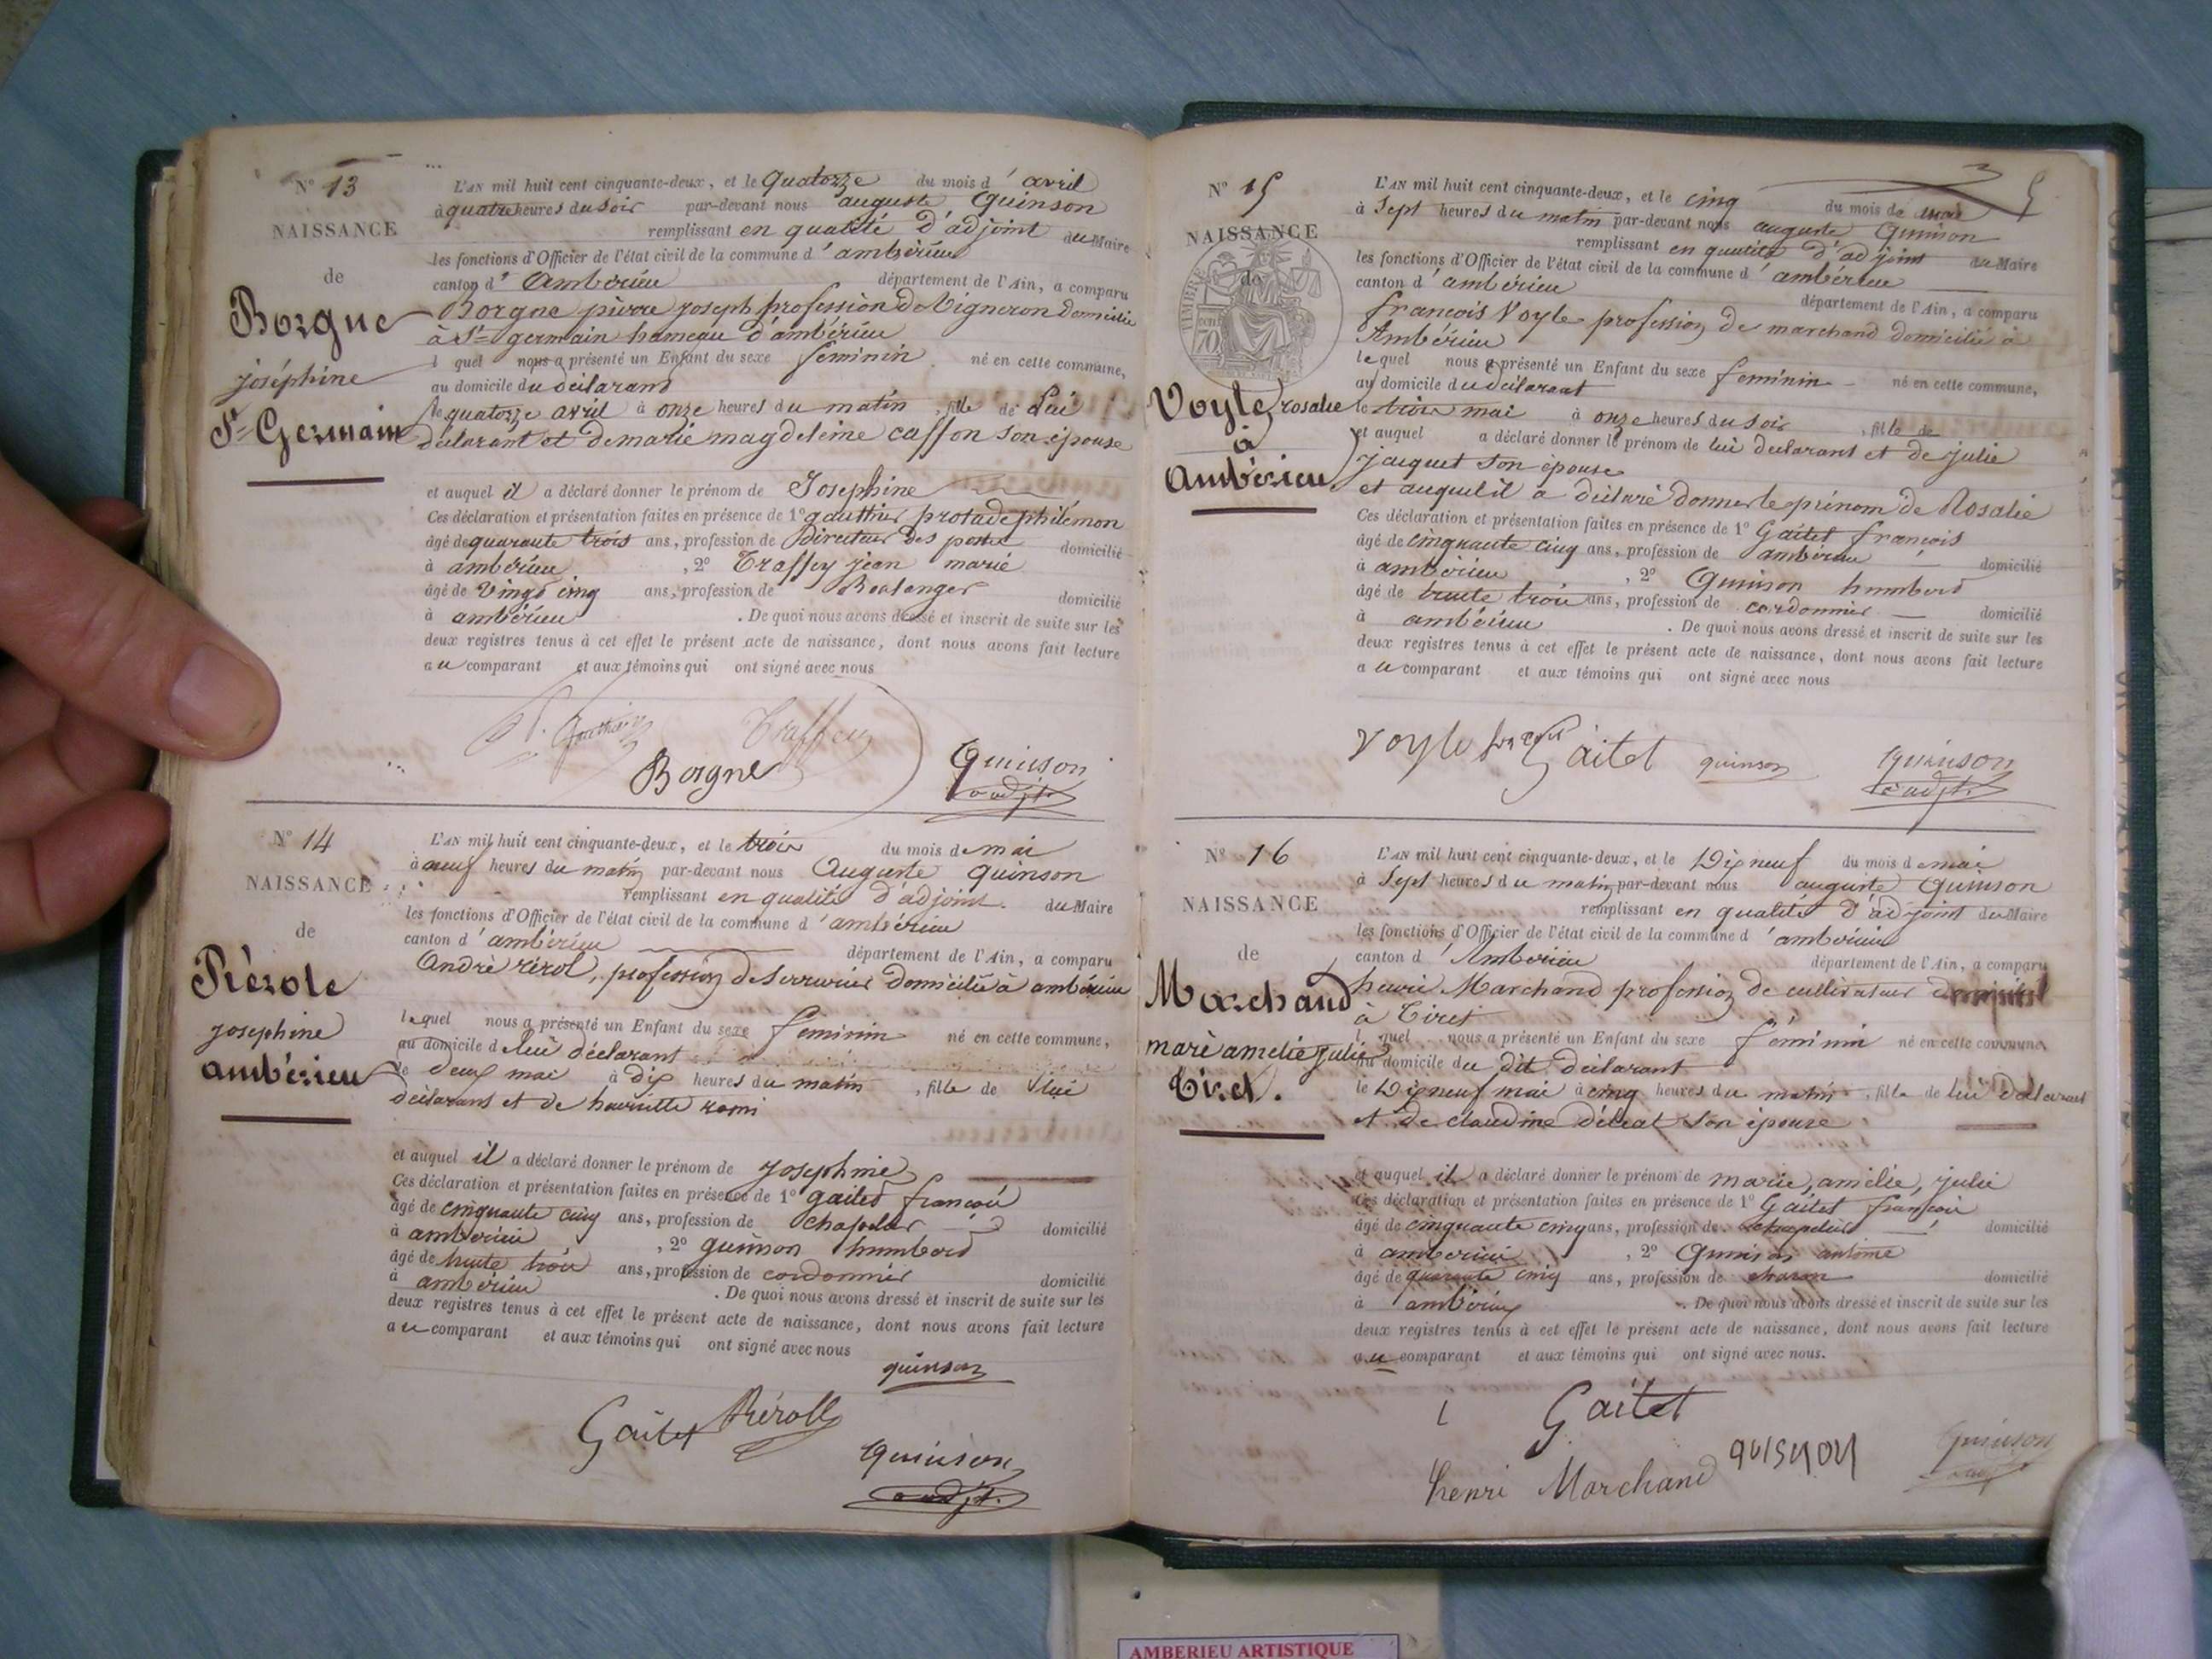 N° 13
NAISSANCE
de
Borgne
joséphine
St Germain
L'AN mil huit cent cinquante-deux, et le quatorze du mois d' avril
à quatre heures du soir par-devant nous auguste Quinson
remplissant en qualité d'adjoint du Maire
les fonctions d'Officier de l'état civil de la commune d' ambérieu
canton d' Ambérieu département de l'Ain, a comparu
Borgne pierre joseph profession de Vigneron domicilié
à St germain hameau d'ambérieu
l quel nous a présenté un Enfant du sexe feminin né en cette commune,
au domicile du déclarant
le quatorze avril à onze heures du matin, fille de Lui
déclarant et de marie magdeleine casson son épouse
et auquel il a déclaré donner le prénom de Josephine
Ces déclaration et présentation faites en présence de 1° gauthier protade philémon
âgé de quarante trois ans, profession de Directeur des postes domicilié
à ambérieu, 2° Traffey jean marie
âgé de vingt cinq ans, profession de Boulanger domicilié
à ambérieu. De quoi nous avons dressé et inscrit de suite sur les
deux registres tenus à cet effet le présent acte de naissance, dont nous avons fait lecture
au comparant et aux témoins qui ont signé avec nous
P. Gauthier Traffey
Borgne Quinson
adjt.
N° 14
NAISSANCE
de
Rérole
josephine
ambérieu
L'AN mil huit cent cinquante-deux, et le trois du mois de mai
à neuf heures du matin par-devant nous Auguste Quinson
remplissant en qualité d'adjoint du Maire
les fonctions d'Officier de l'état civil de la commune d' ambérieu
canton d' ambérieu département de l'Ain, a comparu
André rérol, profession de Serrurier domicilié à ambérieu
lequel nous a présenté un Enfant du sexe feminin né en cette commune,
au domicile de lui déclarant
le deux mai à dix heures du matin, fille de lui
déclarant et de henriette
et auquel il a déclaré donner le prénom de Josephine
Ces déclaration et présentation faites en présence de 1° gaitet françois
âgé de cinquante cinq ans, profession de chapelier domicilié
à ambérieu, 2° quinson humbert
âgé de trente trois ans, profession de cordonnier domicilié
à ambérieu. De quoi nous avons dressé et inscrit de suite sur les
deux registres tenus à cet effet le présent acte de naissance, dont nous avons fait lecture
au comparant et aux témoins qui ont signé avec nous
quinson
Gaitet Réroll
Quinson
adjt.
5
N° 15
NAISSANCE
de
TIMBRE
70
Voyle rosalie
à
Ambérieu
L'AN mil huit cent cinquante-deux, et le cinq du mois de mai
à Sept heures du matin par-devant nous auguste Quinson
remplissant en qualité d'adjoint du Maire
les fonctions d'Officier de l'état civil de la commune d' ambérieu
canton d' ambérieu département de l'Ain, a comparu
françois Voyle profession de marchand domicilié à
Ambérieu
lequel nous a présenté un Enfant du sexe feminin né en cette commune,
au domicile du déclarant
le trois mai à onze heures du soir, fille de
et auquel a déclaré donner le prénom de lui déclarant et de julie
jacquet son épouse
et auquel il a déclaré donner le prénom de Rosalie
Ces déclaration et présentation faites en présence de 1° Gaitet françois
âgé de cinquante cinq ans, profession de ambérieu domicilié
à ambérieu, 2° Quinson humbert
âgé de trente trois ans, profession de cordonnier domicilié
à ambérieu. De quoi nous avons dressé et inscrit de suite sur les
deux registres tenus à cet effet le présent acte de naissance, dont nous avons fait lecture
au comparant et aux témoins qui ont signé avec nous
Voyle Gaitet quinson Quinson
adjt.
N° 16
NAISSANCE
de
Marchand
marie amelie julie
Tiret.
L'AN mil huit cent cinquante-deux, et le Dix neuf du mois de mai
à Sept heures du matin par-devant nous auguste Quinson
remplissant en qualité d'adjoint du Maire
les fonctions d'Officier de l'état civil de la commune d' ambérieu
canton d' Ambérieu département de l'Ain, a comparu
henri Marchand profession de cultivateur domicilié
à Tiret
l quel nous a présenté un Enfant du sexe féminin né en cette commune,
au domicile du dit déclarant
le Dix neuf mai à cinq heures du matin, fille de lui Déclarant
et de claudine son épouse
et auquel il a déclaré donner le prénom de marie, amélie, julie
Ces déclaration et présentation faites en présence de 1° Gaitet françois
âgé de cinquante cinq ans, profession de chapelier domicilié
à ambérieu, 2° Quinson antoine
âgé de quarante cinq ans, profession de charon domicilié
à ambérieu. De quoi nous avons dressé et inscrit de suite sur les
deux registres tenus à cet effet le présent acte de naissance, dont nous avons fait lecture
au comparant et aux témoins qui ont signé avec nous.
Gaitet
henri Marchand quinson Quinson
AMBERIEU ARTISTIQUE